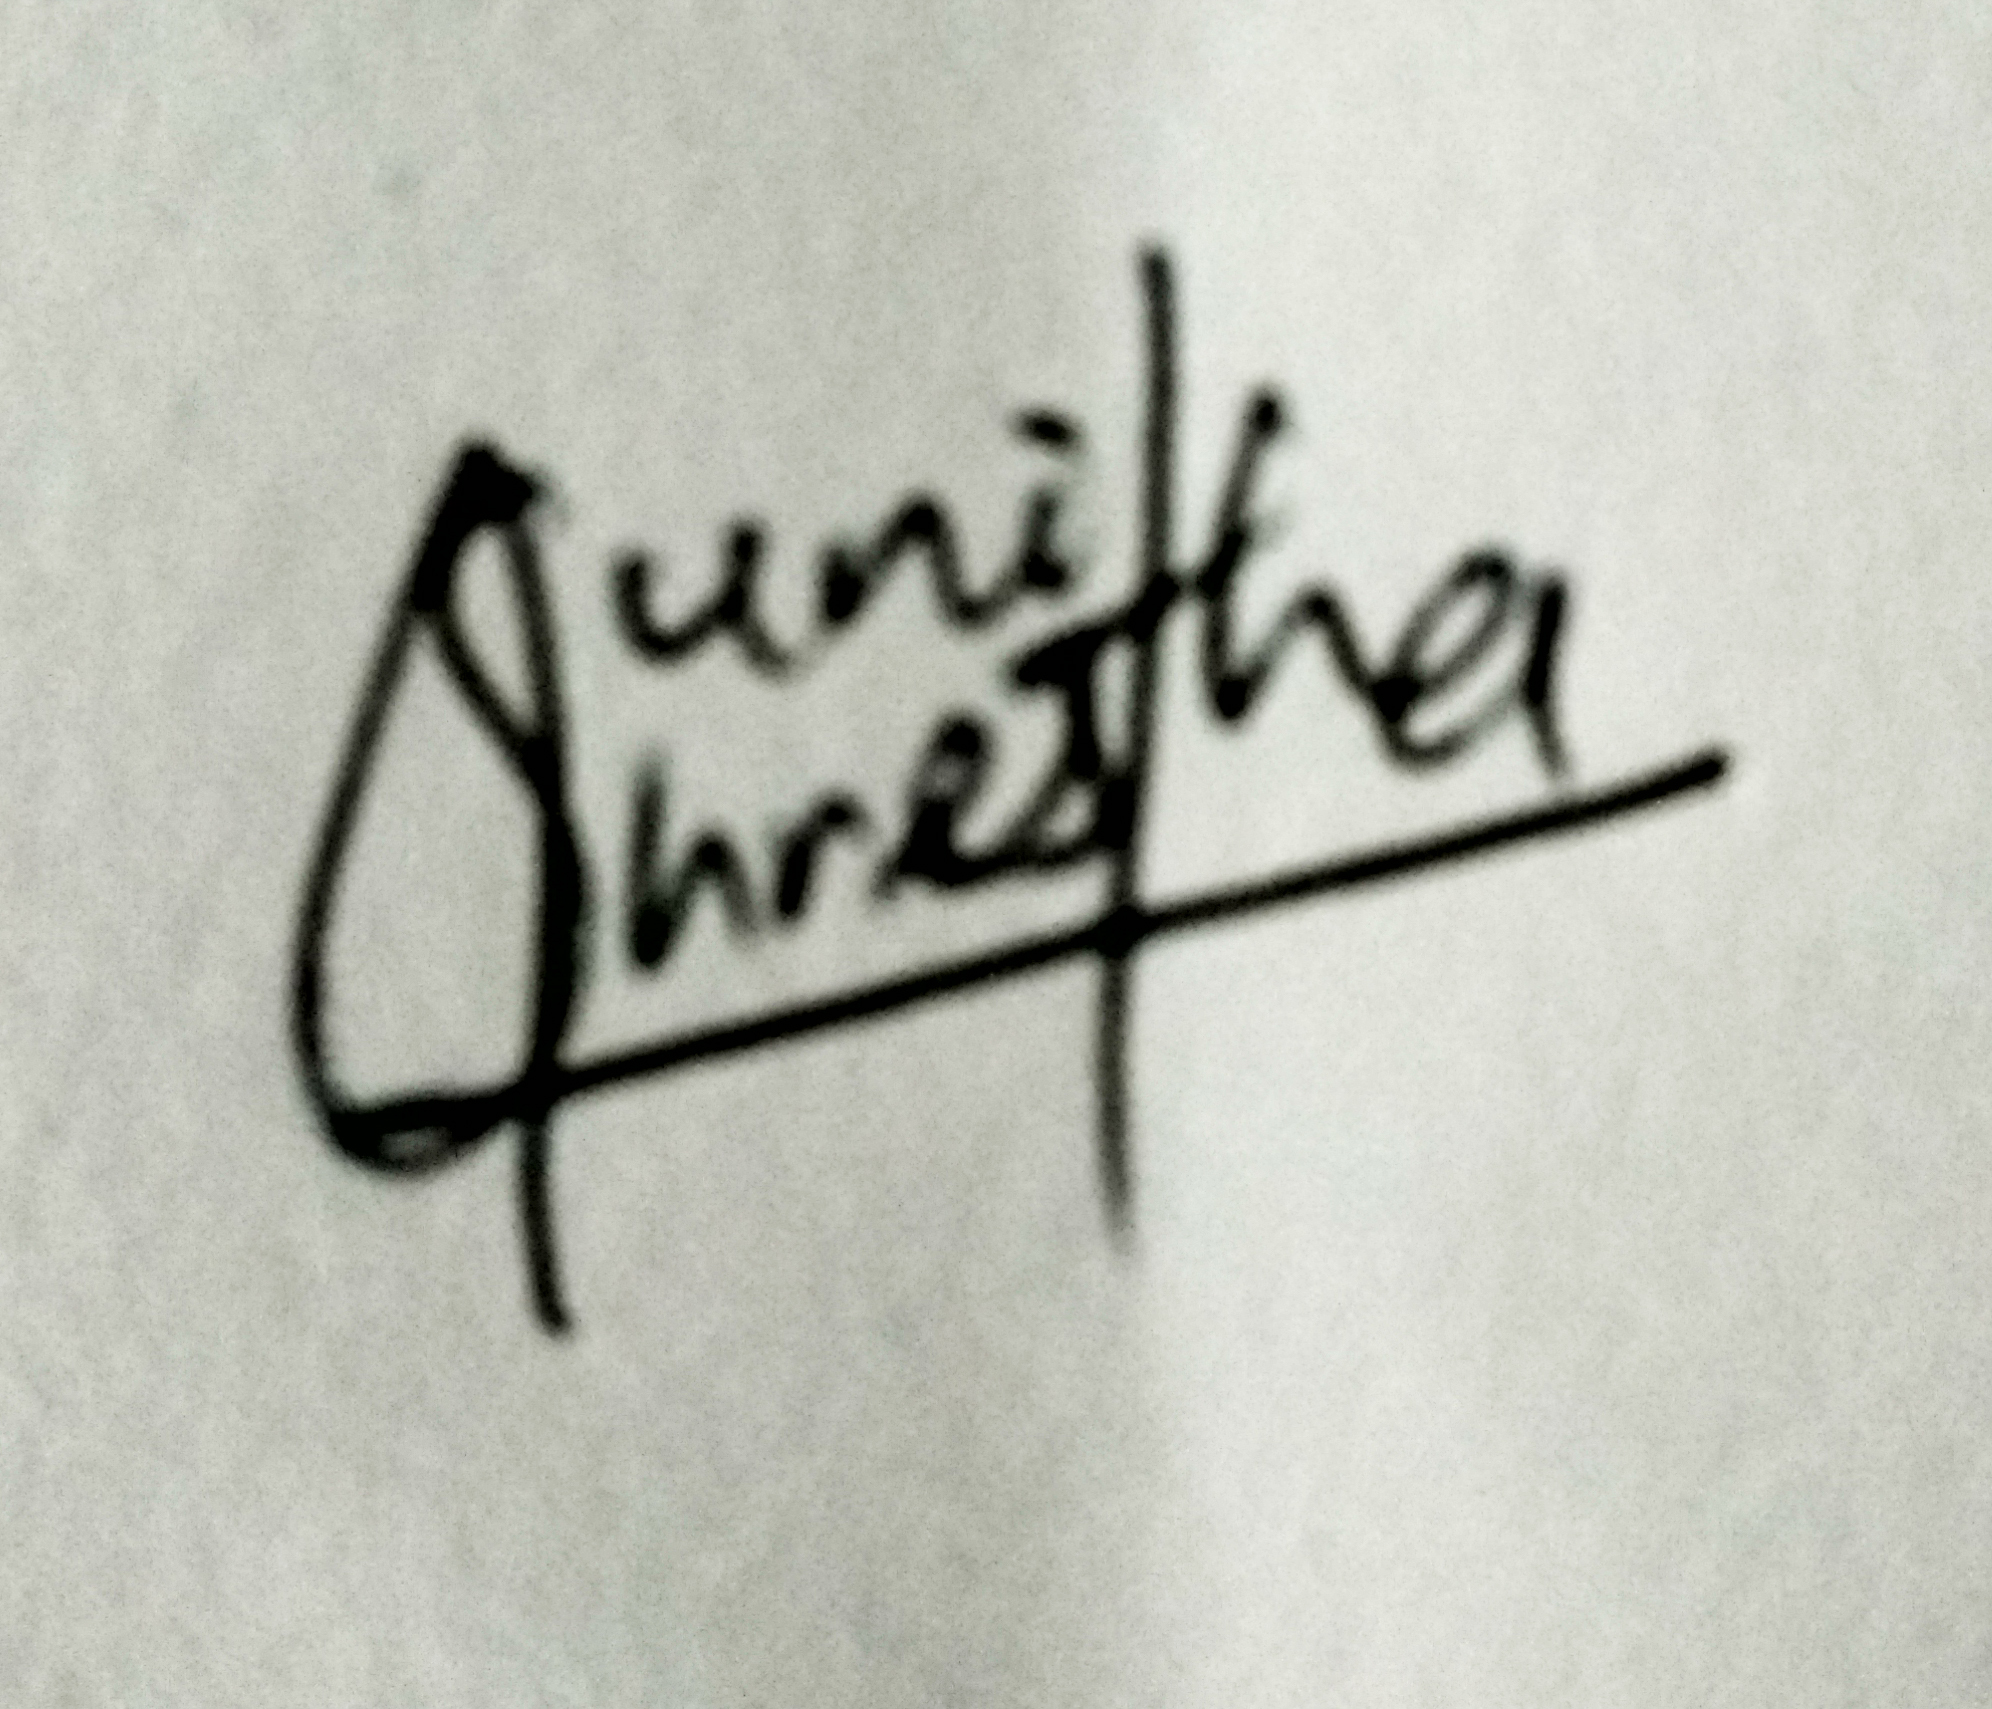 Sunitha
Shrestha